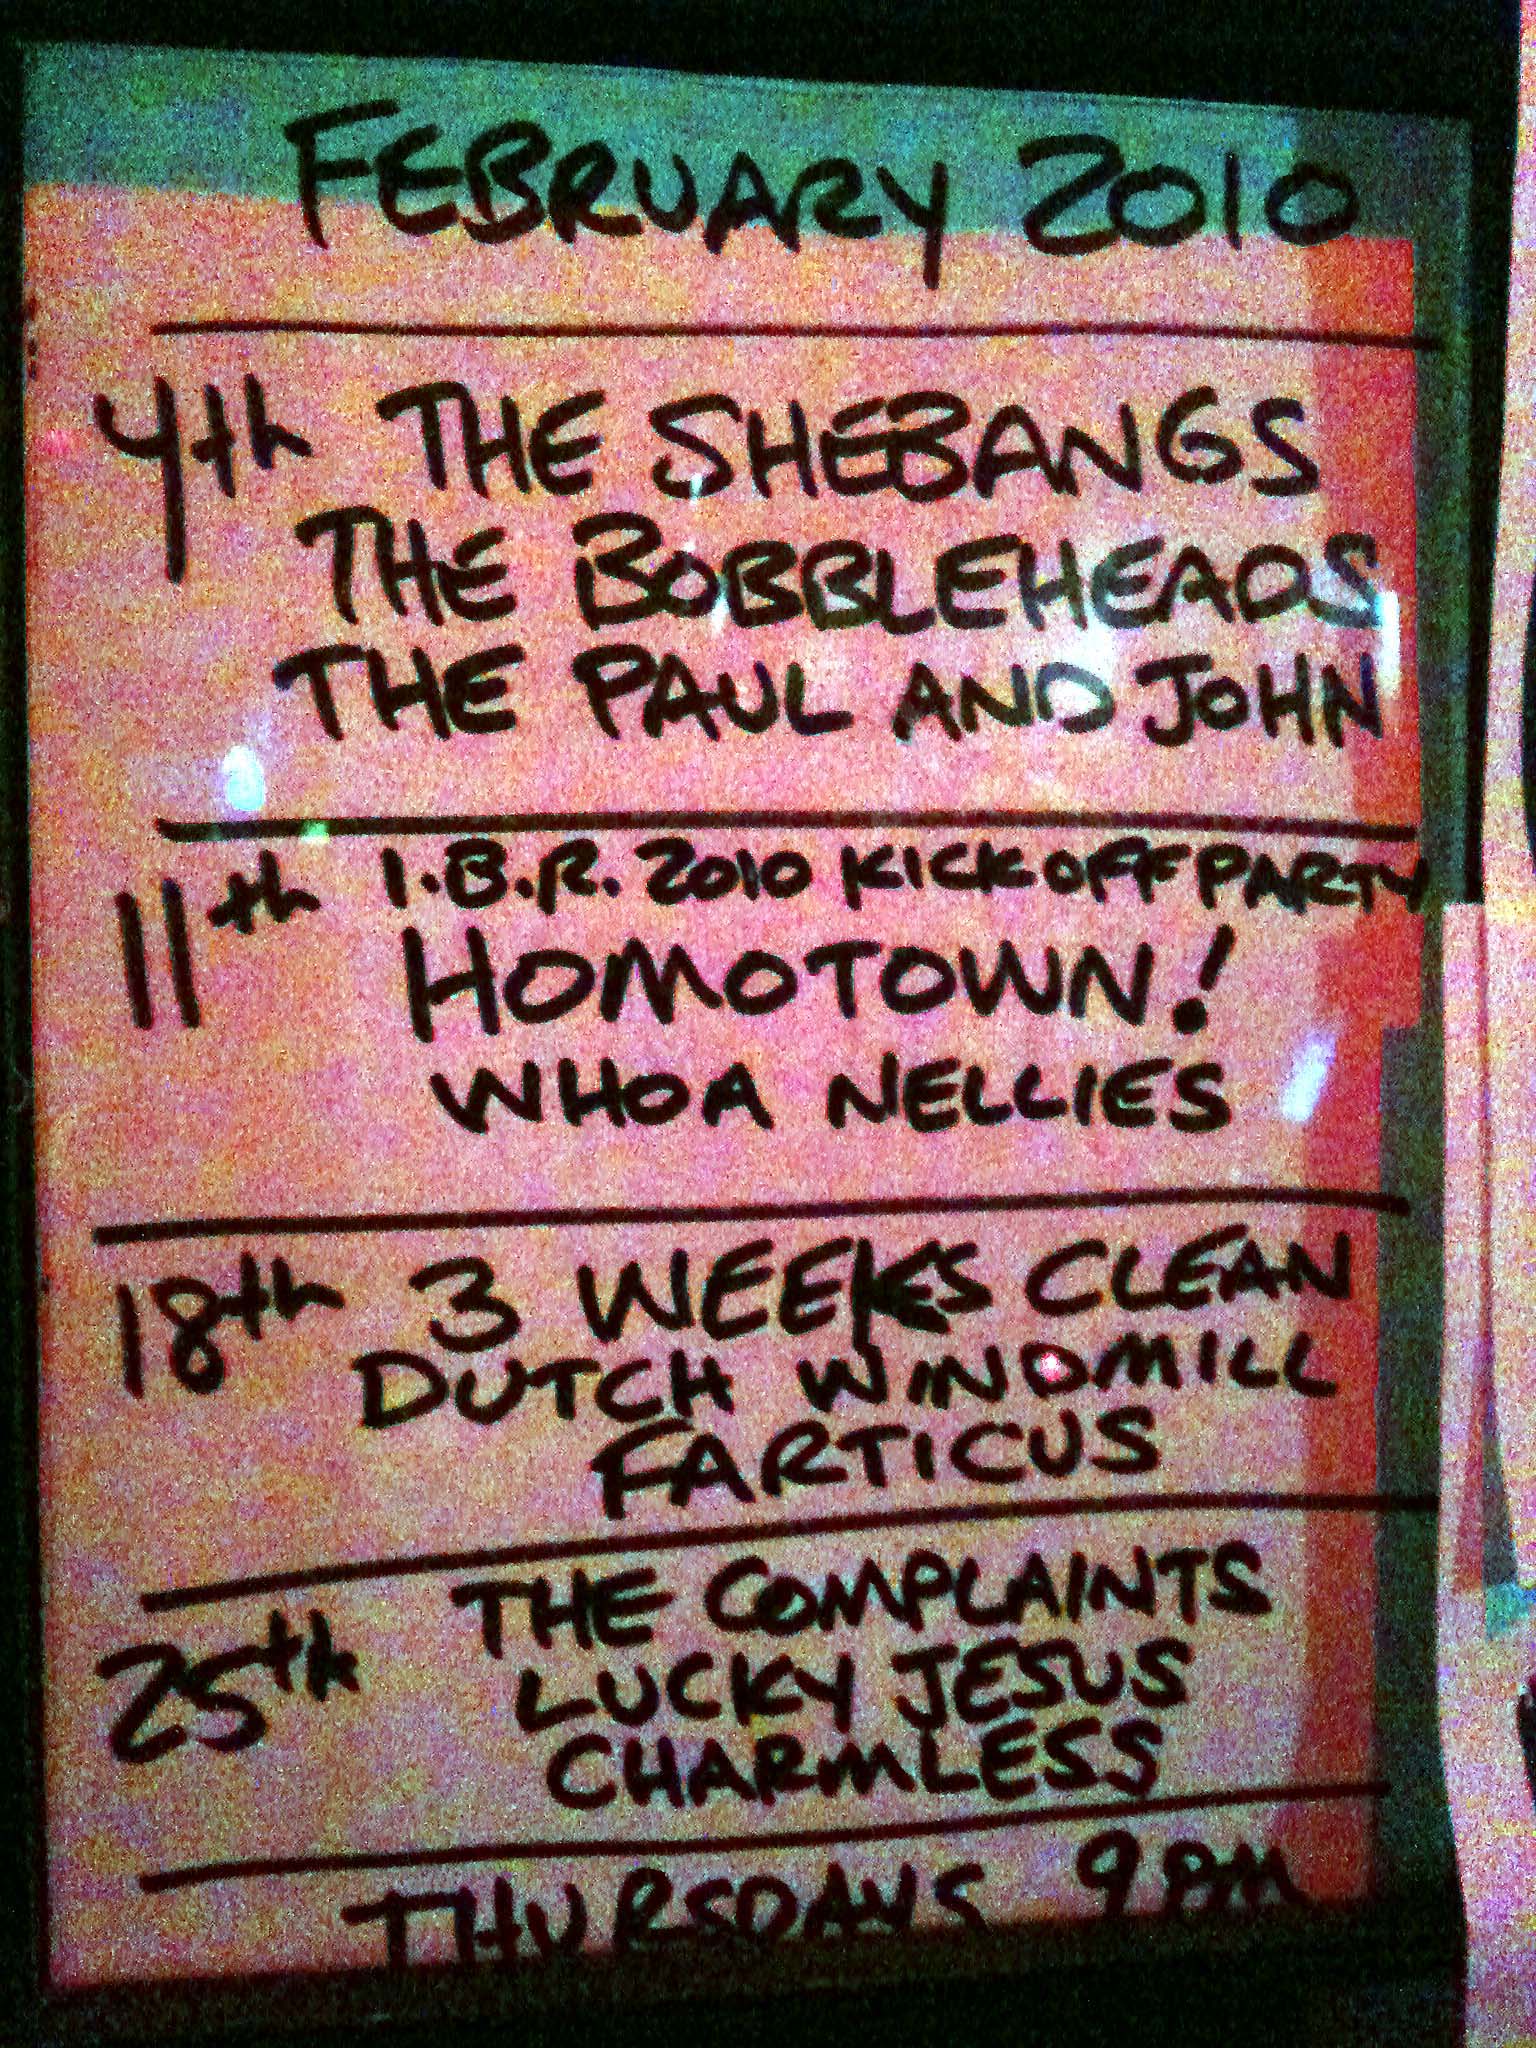 FEBRUARY 2010
4th THE SHEBANGS
THE BOBBLEHEADS
THE PAUL AND JOHN
11th I.B.R. 2010 KICKOFF PARTY
HOMOTOWN!
WHOA NELLIES
18th 3 WEEKS CLEAN
DUTCH WINDMILL
FARTICUS
25th THE COMPLAINTS
LUCKY JESUS
CHARMLESS
THURSDAYS 9PM